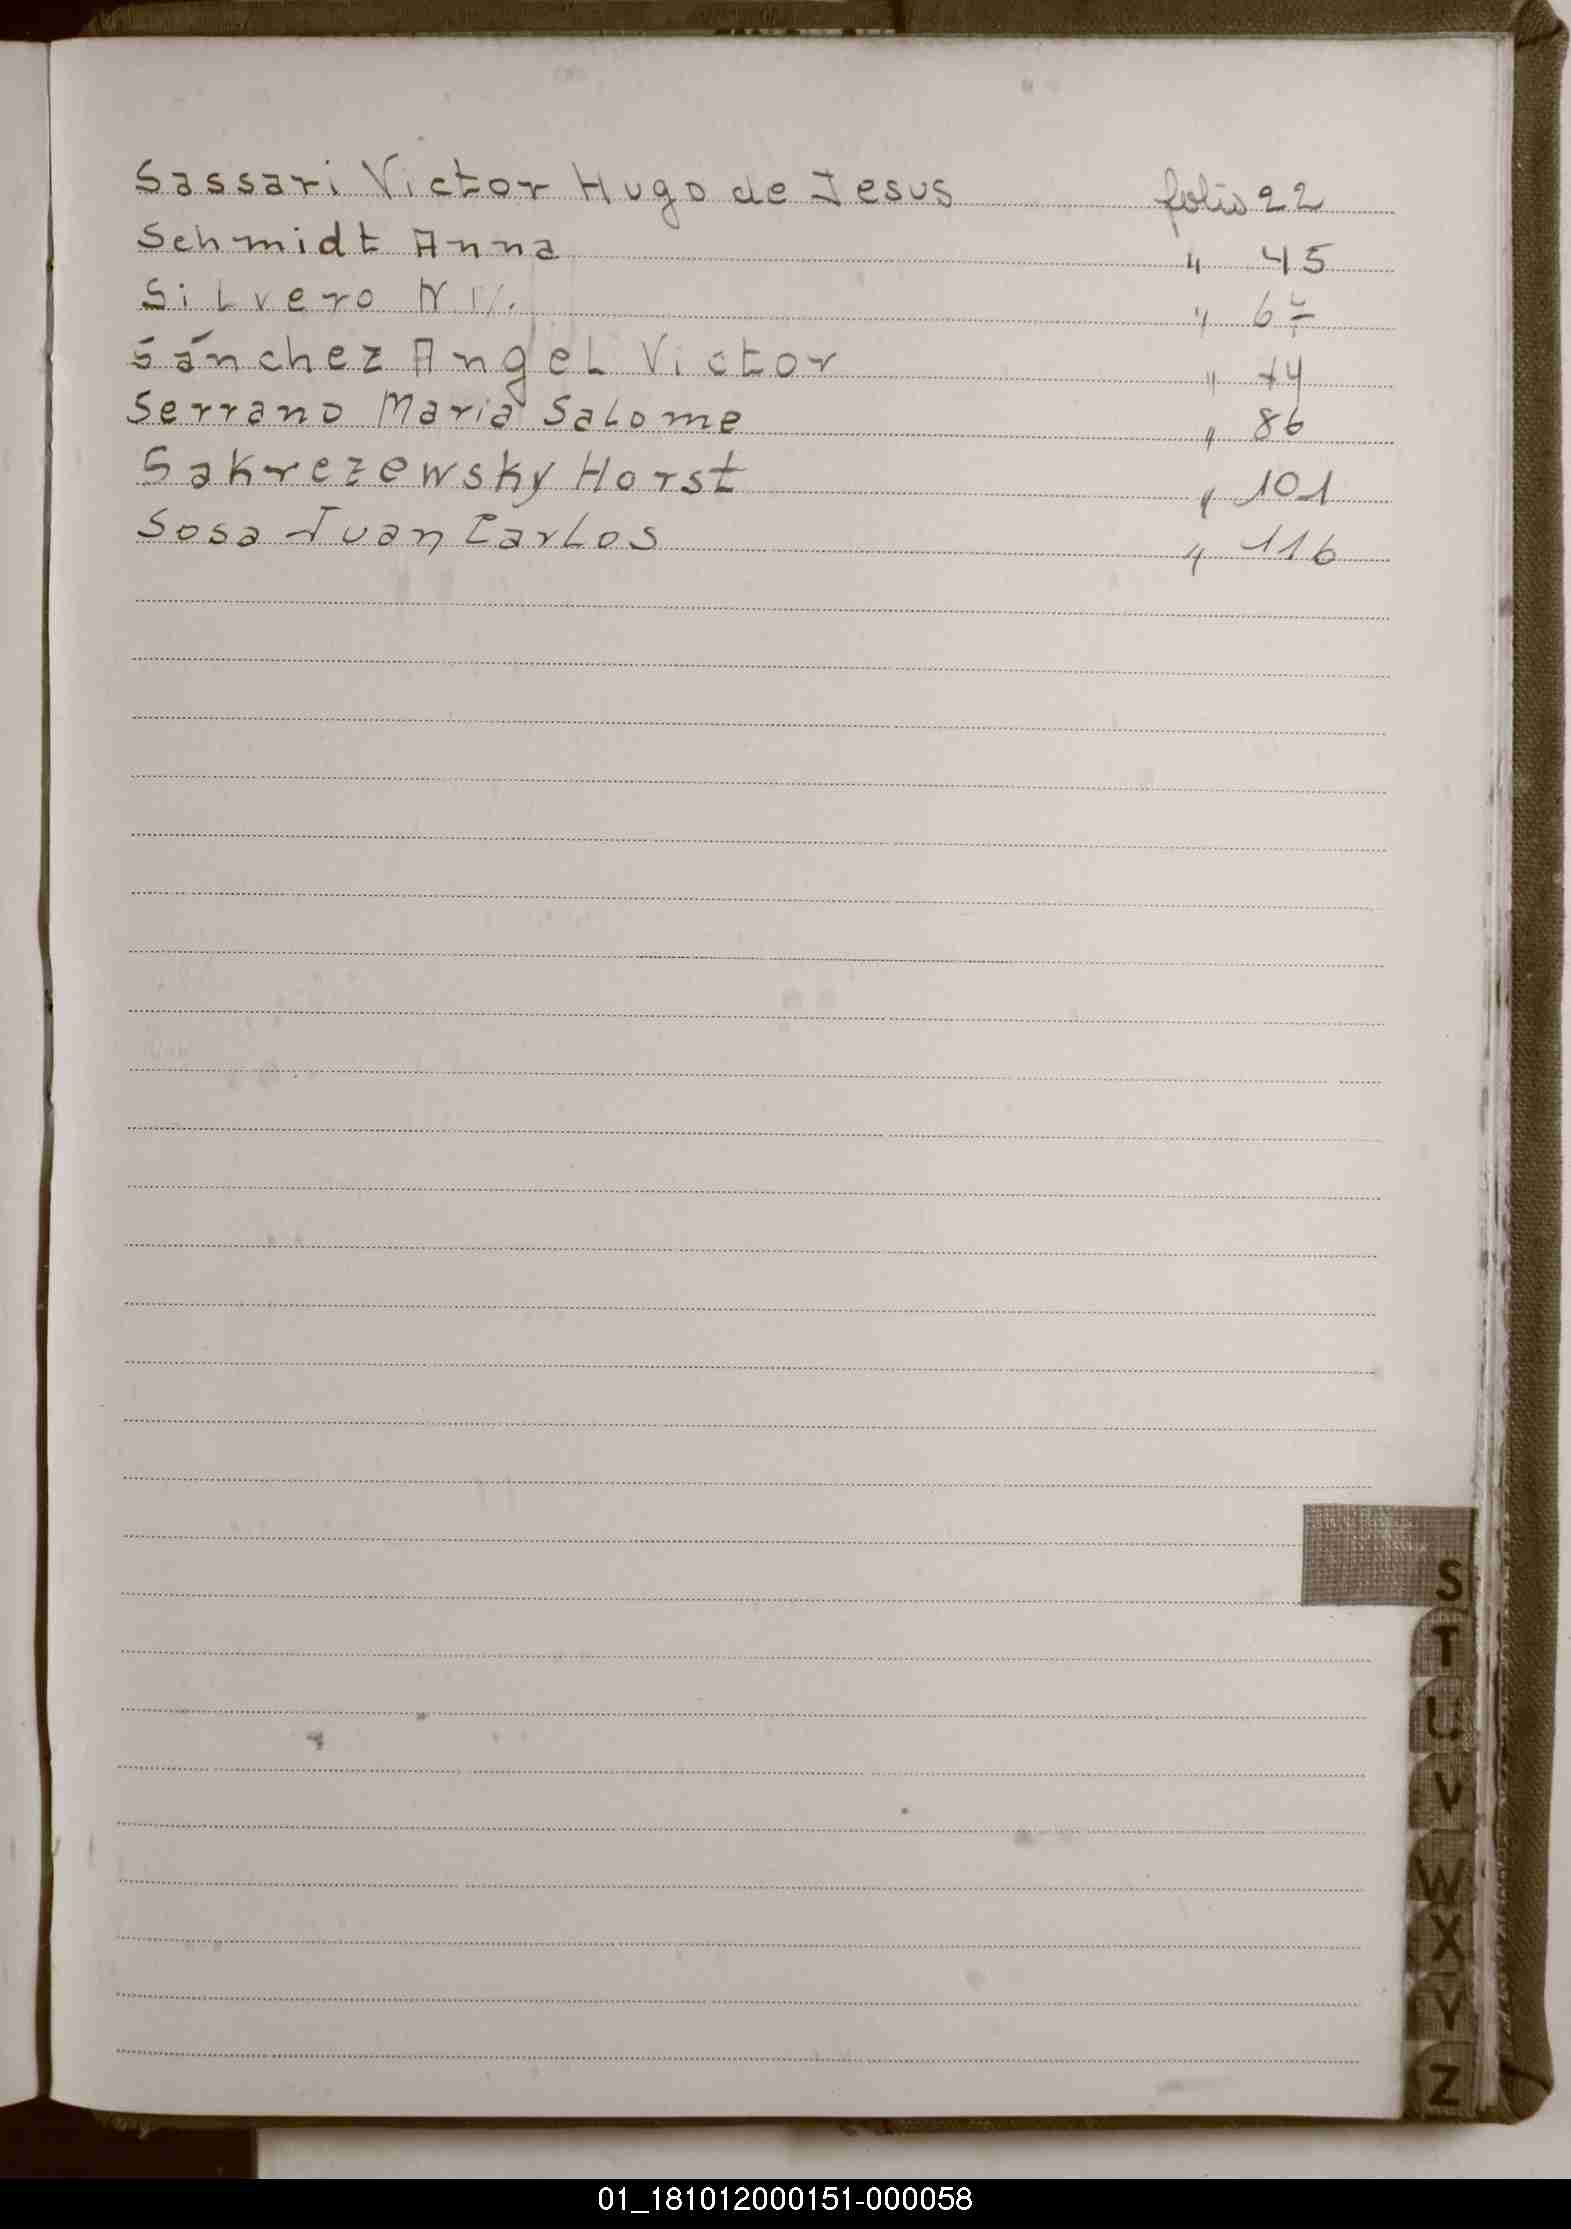 Sassari Victor Hugo de Jesus folio 22
Schmidt Anna " 45
Silvero N N. " 67
Sánchez Angel Victor " 74
Serrano Maria Salome " 86
Sakrezewsky Horst " 101
Sosa Juan Carlos " 116
S
T
U
V
W
X
Y
Z
01_181012000151-000058